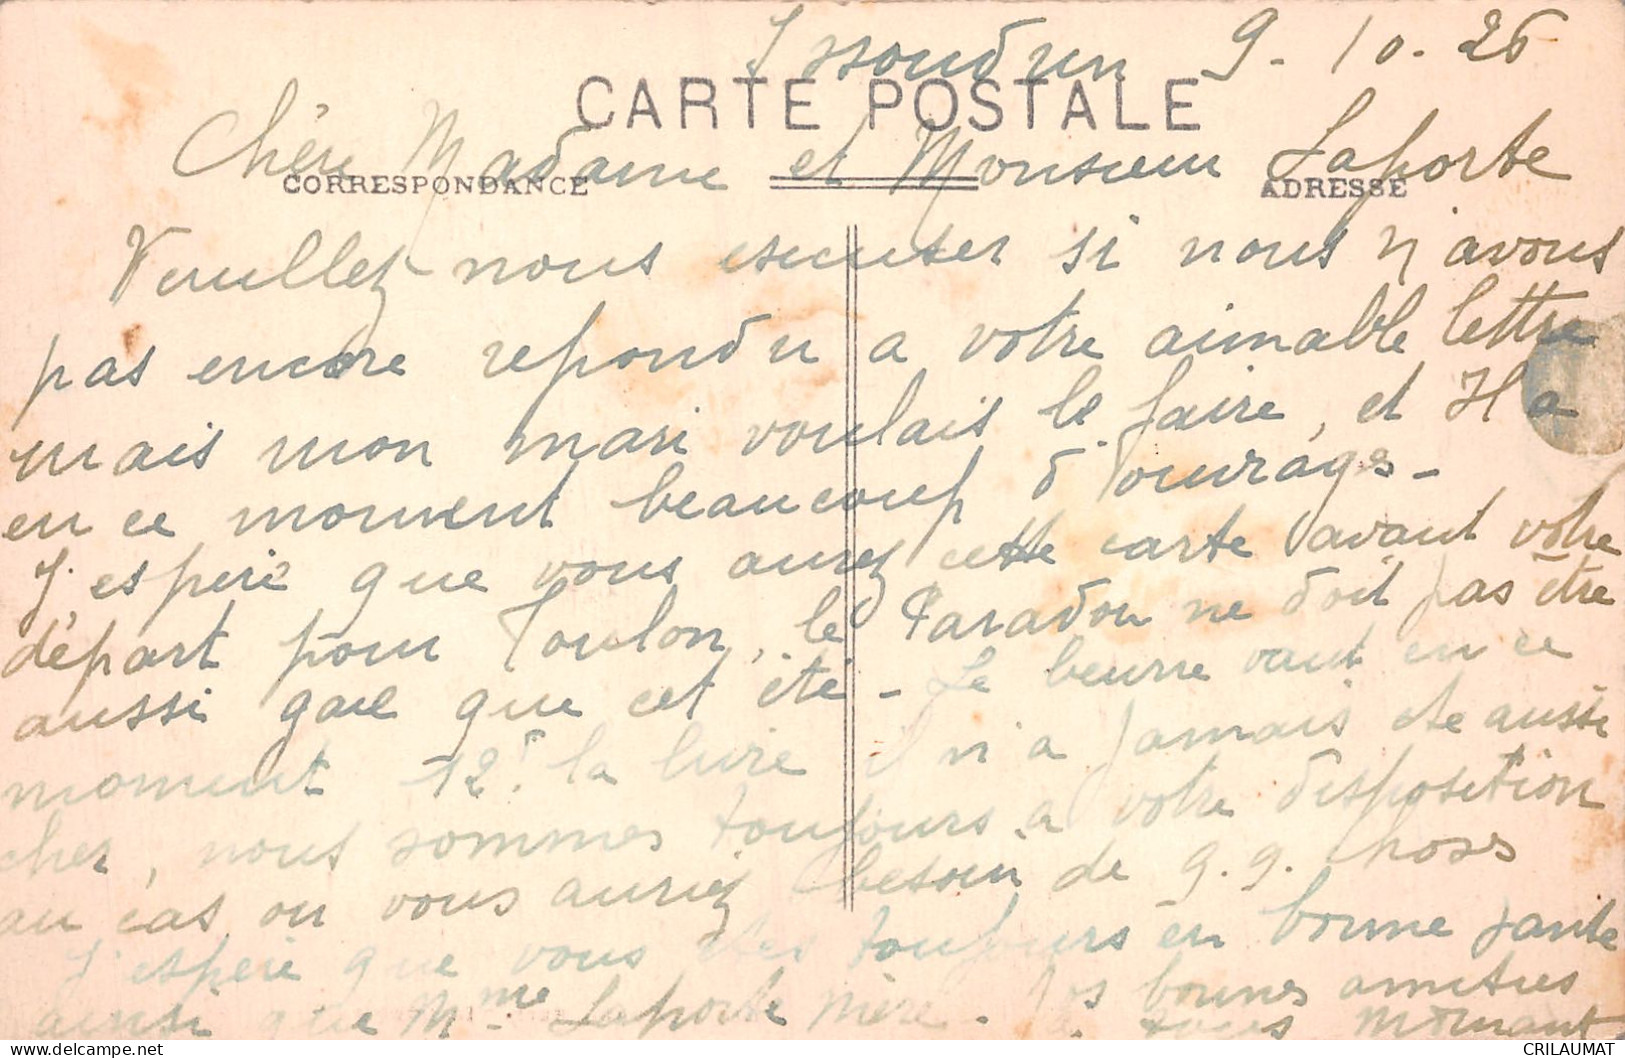 Issoudun 9-10-26
CARTE POSTALE
Chère Madame et Monsieur Laporte
CORRESPONDANCE
ADRESSE
Veuillez nous excuser si nous n'avons
pas encore repondu a votre aimable lettre
mais mon mari voulais le faire, et Il a
en ce moment beaucoup d'ouvrages-
J'espere que vous aurez cette carte avant votre
départ pour Toulon, le Paradou ne doit pas être
aussi gaie que cet été - Le beurre vaut en ce
moment 12f la livre il n'a jamais ete aussi
cher, nous sommes toujours a votre disposition
au cas ou vous auriez besoin de q.q. choses
J'espere que vous etes toujours en bonne sante
ainsi que Mme Laporte mère. Nos bonnes amities
a tous
CRILAUMAT